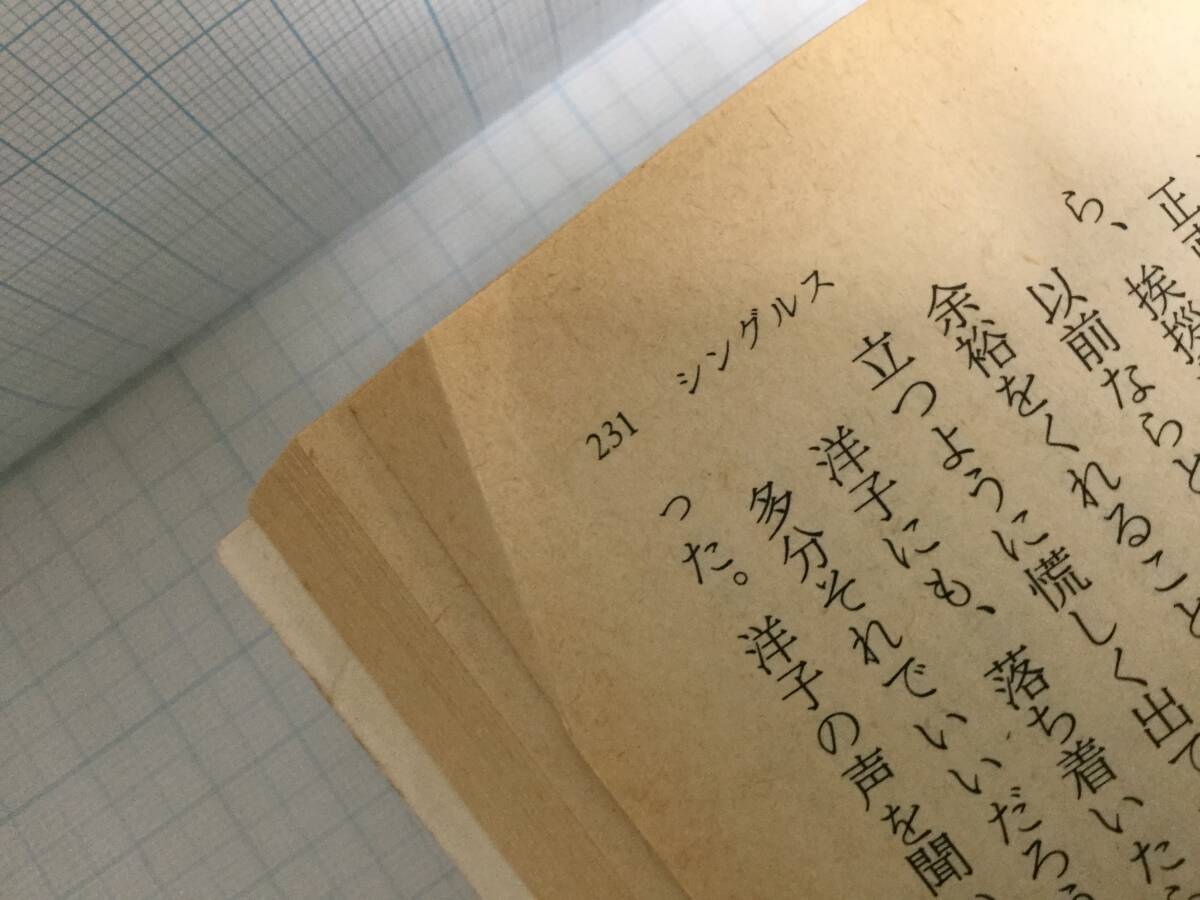 ら、挨拶
以前ならと
余裕をくれること
立つように慌しく出て
洋子にも、落ち着いた
多分それでいいだろう
った。洋子の声を聞
231 シングルス